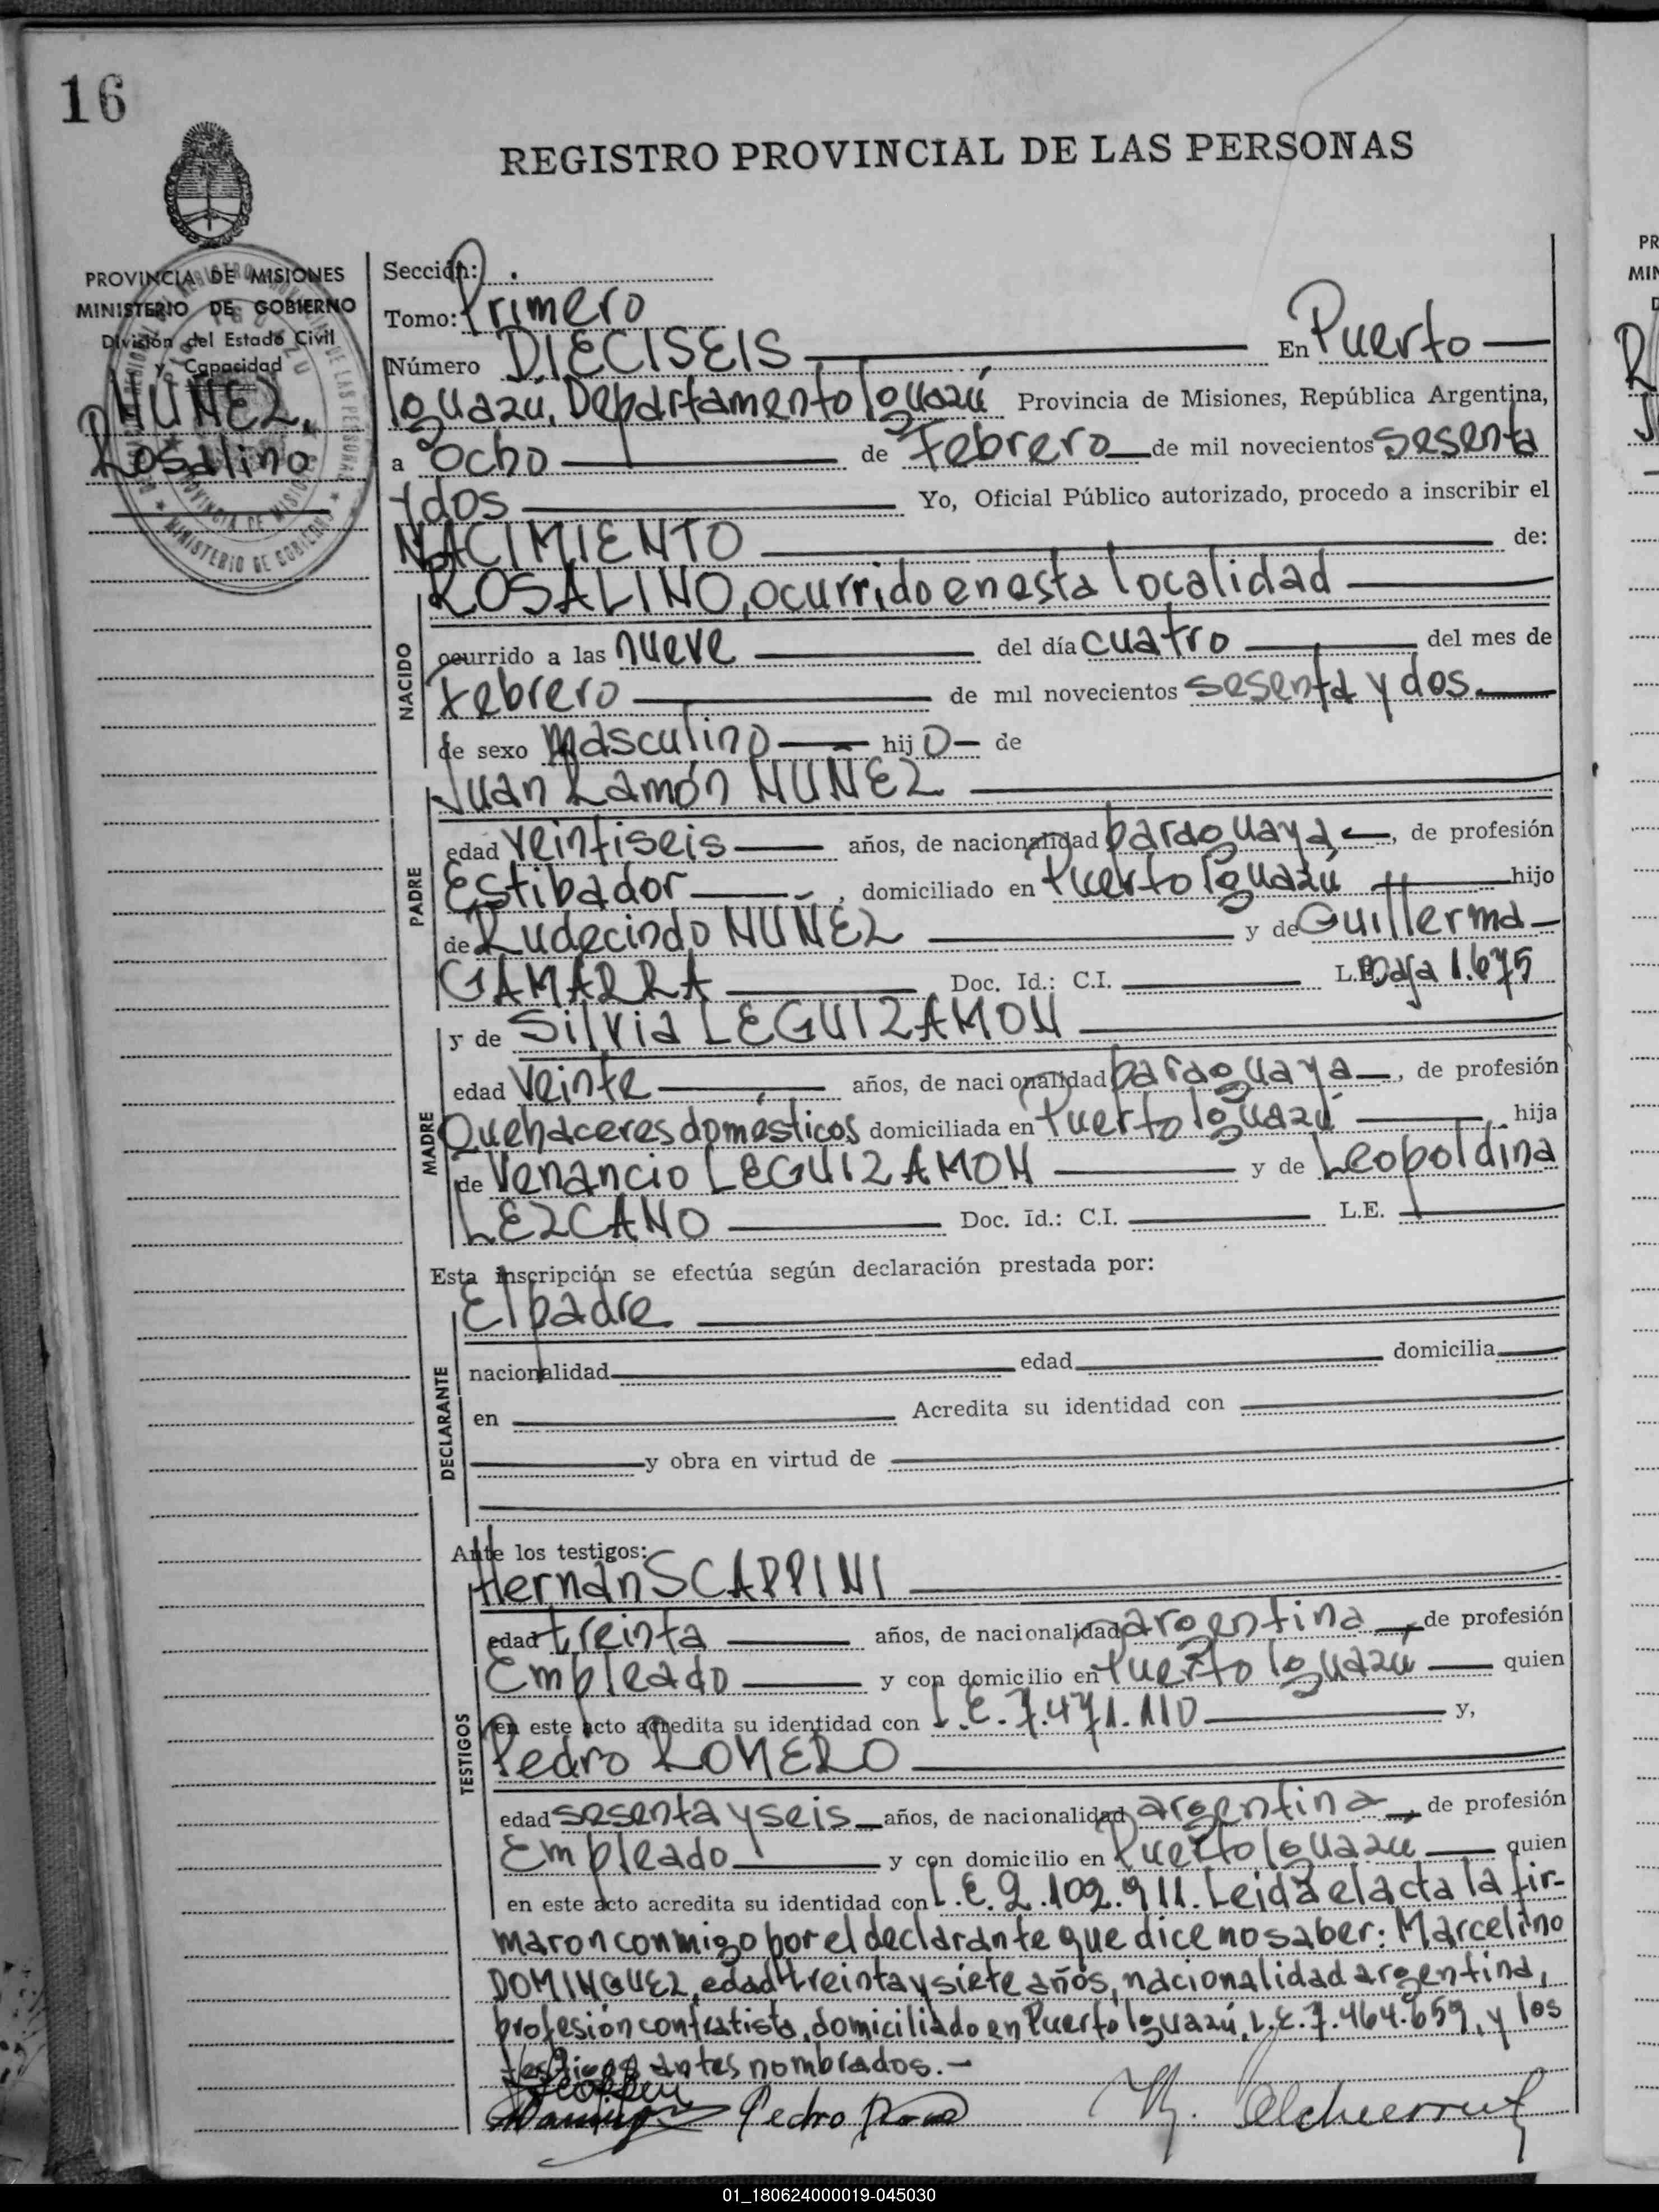 16
REGISTRO PROVINCIAL DE LAS PERSONAS
PROVINCIA DE MISIONES
MINISTERIO DE GOBIERNO
División del Estado Civil
y Capacidad
NUÑEZ,
Rosalino
Sección:
Tomo: Primero
Número DIECISEIS En Puerto
Iguazú, Departamento Iguazú Provincia de Misiones, República Argentina,
a ocho de Febrero de mil novecientos sesenta
y dos Yo, Oficial Público autorizado, procedo a inscribir el
NACIMIENTO de:
ROSALINO, ocurrido en esta localidad
NACIDO
ocurrido a las nueve del día cuatro del mes de
Febrero de mil novecientos sesenta y dos.
de sexo masculino hij o de
Juan Ramón NUÑEZ
PADRE
edad veintiseis años, de nacionalidad paraguaya, de profesión
Estibador, domiciliado en Puerto Iguazú hijo
de Rudecindo NUÑEZ y de Guillerma
GAMARRA Doc. Id.: C.I. L.E. Baja 1.675
y de Silvia LEGUIZAMON
MADRE
edad veinte años, de nacionalidad paraguaya, de profesión
Quehaceres domésticos domiciliada en Puerto Iguazú hija
de Venancio LEGUIZAMON y de Leopoldina
LEZCANO Doc. Id.: C.I. L.E.
Esta inscripción se efectúa según declaración prestada por:
El padre
DECLARANTE
nacionalidad edad domicilia
en Acredita su identidad con
y obra en virtud de
Ante los testigos:
Hernán SCAPPINI
TESTIGOS
edad treinta años, de nacionalidad argentina, de profesión
Empleado y con domicilio en Puerto Iguazú quien
en este acto acredita su identidad con L.E. 7.471.110 y,
Pedro ROMERO
edad sesenta y seis años, de nacionalidad argentina, de profesión
Empleado y con domicilio en Puerto Iguazú quien
en este acto acredita su identidad con L.E. 2.102.911. Leida el acta la fir-
maron conmigo por el declarante que dice no saber: Marcelino
DOMINGUEZ, edad treinta y siete años, nacionalidad argentina,
profesión contratista, domiciliado en Puerto Iguazú, L.E. 7.464.659, y los
testigos antes nombrados.-
Pedro
01_180624000019-045030